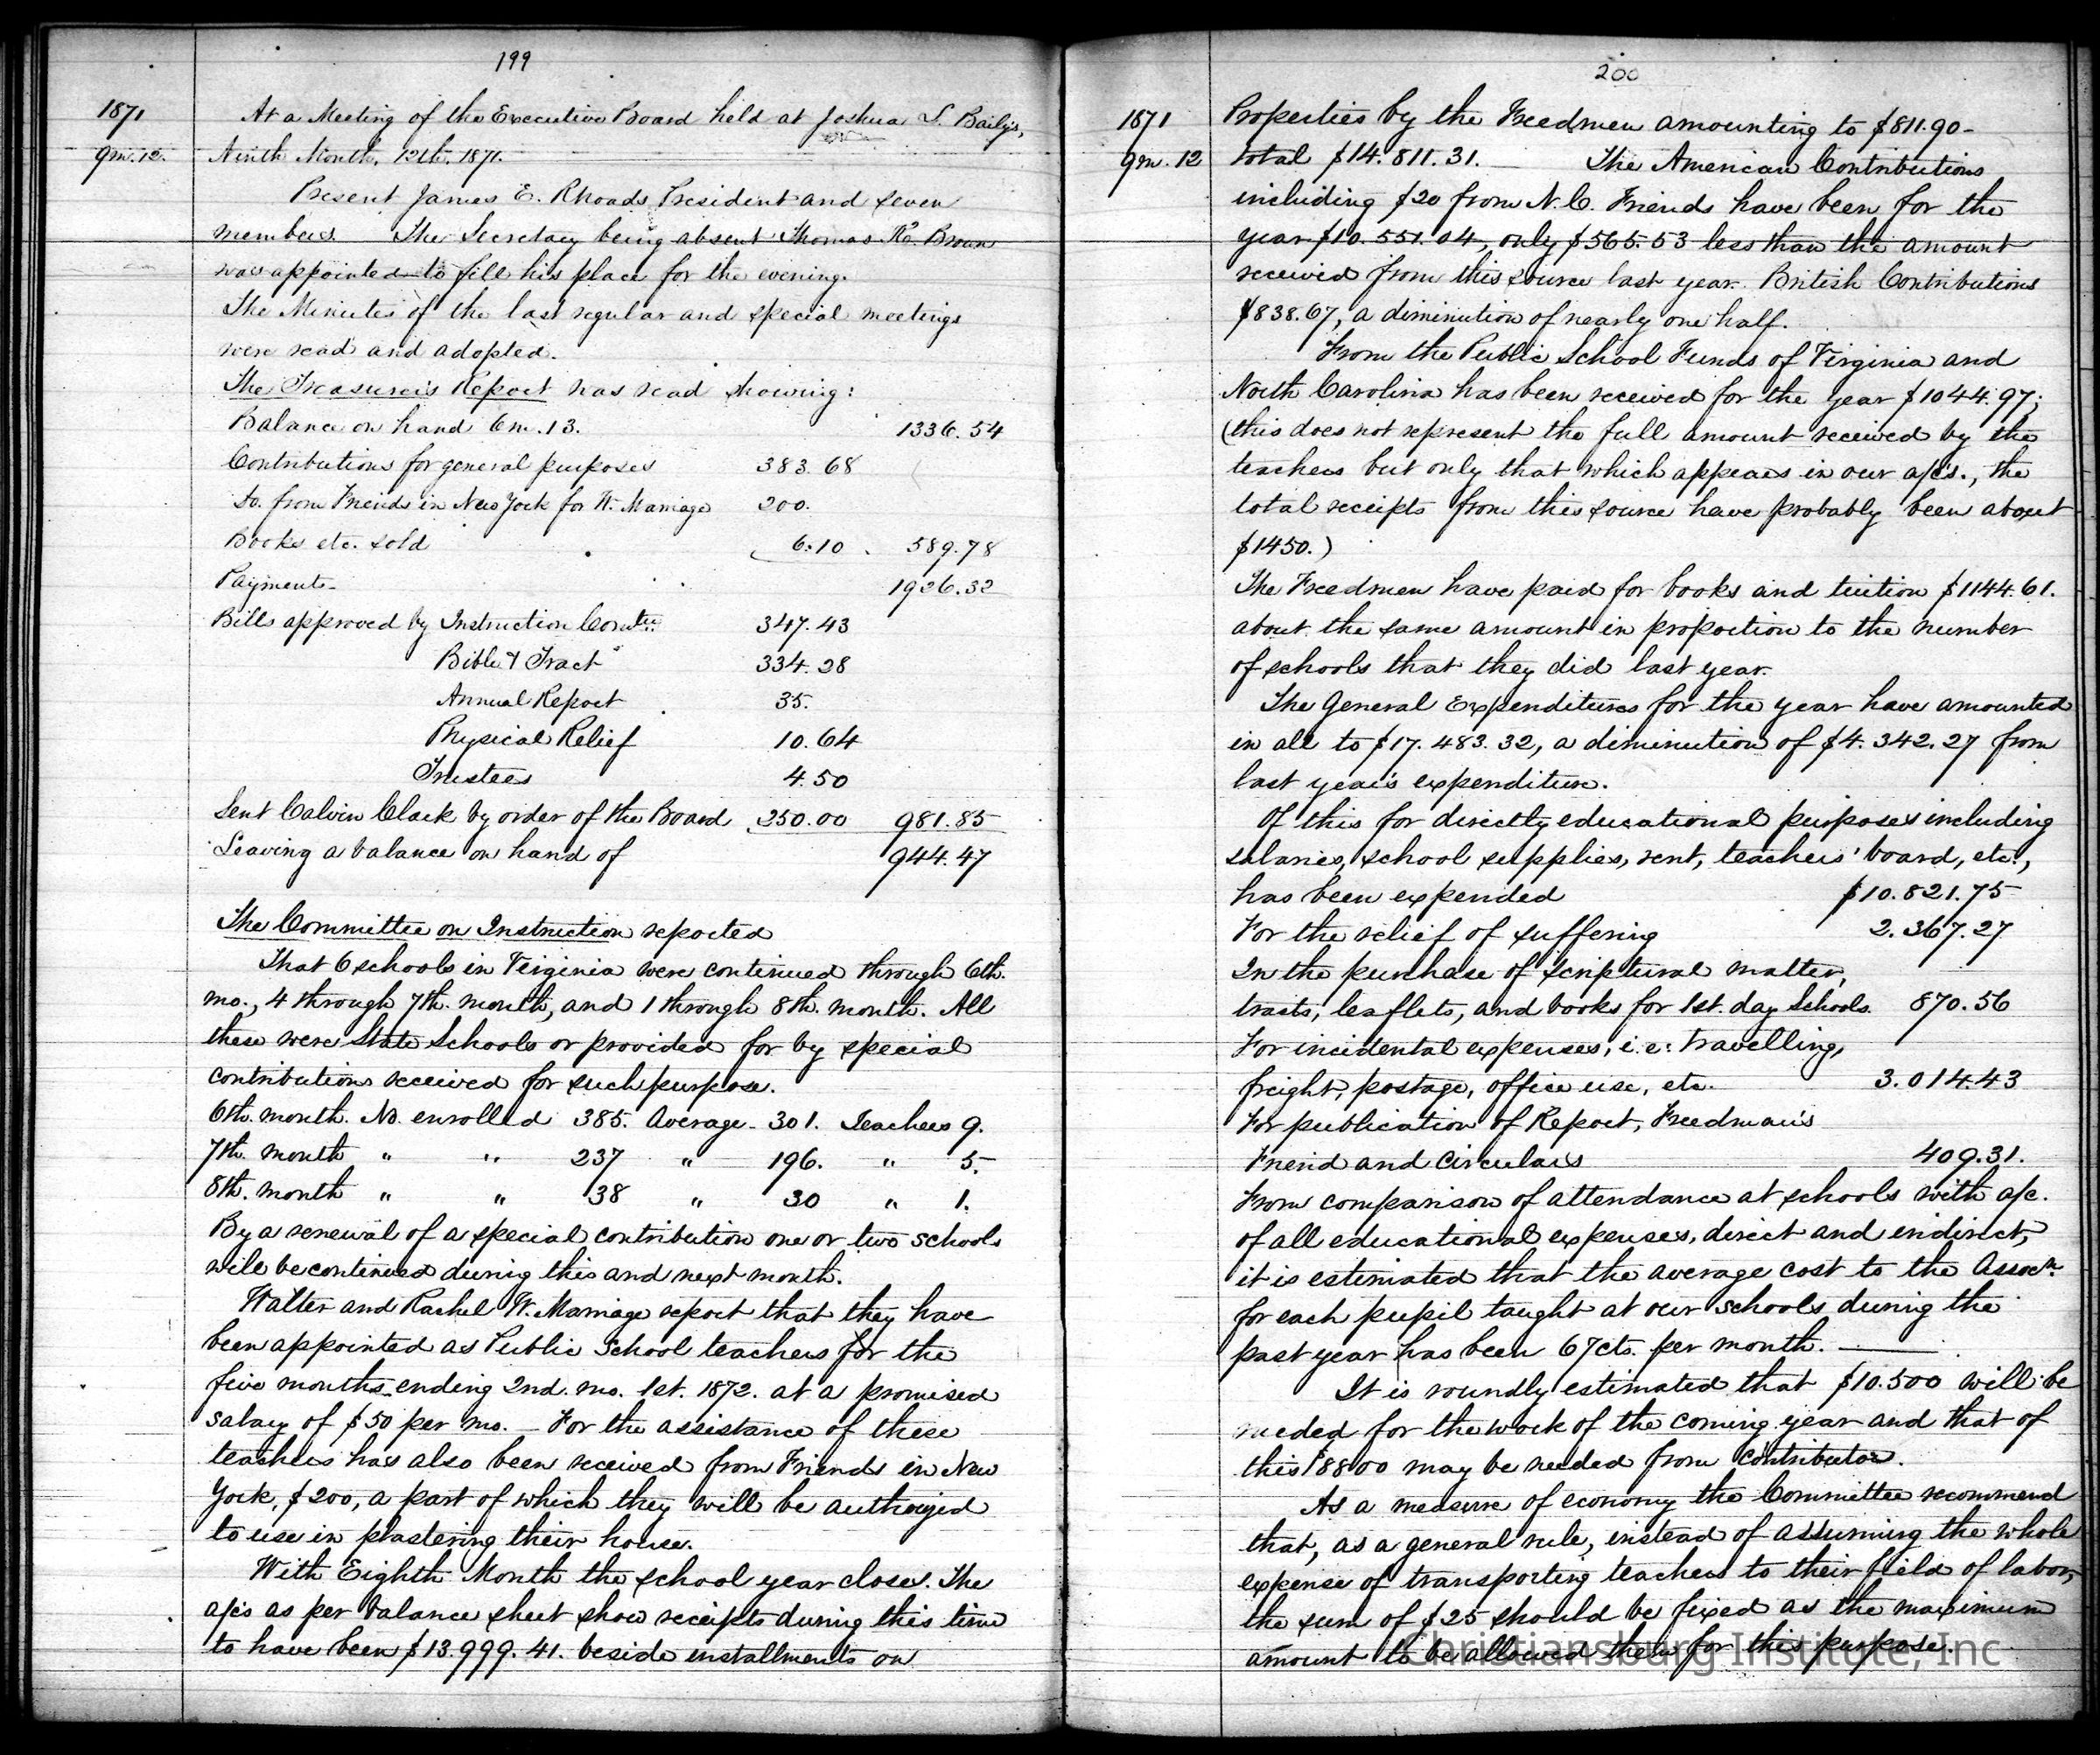 199
1871
9m.12.
At a Meeting of the Executive Board held at Joshua L. Baily's,
Ninth Month, 12th, 1871.
Present James E. Rhoads, President and seven
members. The Secretary being absent Thomas Brown
was appointed to fill his place for the evening.
The Minutes of the last regular and special meetings
were read and adopted.
The Treasurer's Report was read showing:
Balance on hand 6m.13. 1336.54
Contributions for general purposes 383.68
Do. from Friends in New York for W. Marriage 200.
Books etc. sold 6.10 589.78
Payments 1926.32
Bills approved by Instruction Comtee. 347.43
Bible & Tract " 334.28
Annual Report 35.
Physical Relief 10.64
Trustees 4.50
Sent Calvin Clark by order of the Board 250.00 981.85
Leaving a balance on hand of 944.47
The Committee on Instruction reported
That 6 schools in Virginia were continued through 6th.
mo., 4 through 7th. month, and 1 through 8th. month. All
these were State Schools or provided for by special
contributions received for such purpose.
6th. month. No. enrolled 385. Average - 301. Teachers 9.
7th. month " " 237 " 196. " 5.
8th. month " " 38 " 30 " 1.
By a renewal of a special contribution one or two schools
will be continued during this and next month.
Walter and Rachel W. Marriage report that they have
been appointed as Public School teachers for the
five months ending 2nd. mo. 1st. 1872. at a promised
salary of $50 per mo. — For the assistance of these
teachers has also been received from Friends in New
York, $200, a part of which they will be authorized
to use in plastering their house.
With Eighth Month the school year closes. The
a/cs as per balance sheet show receipts during this time
to have been $13.999.41. beside installments on
200
1871
9m.12
Properties by the Freedmen amounting to $811.90 -
total $14.811.31. The American Contributions
including $20 from N.C. Friends have been for the
year $10.551.04, only $565.53 less than the amount
received from this source last year. British Contributions
$838.67, a diminution of nearly one half.
From the Public School Funds of Virginia and
North Carolina has been received for the year $1044.97;
(this does not represent the full amount received by the
teachers but only that which appears in our a/cs., the
total receipts from this source have probably been about
$1450.)
The Freedmen have paid for books and tuition $1144.61.
about the same amount in proportion to the number
of schools that they did last year.
The General Expenditures for the year have amounted
in all to $17.483.32, a diminution of $4.342.27 from
last year's expenditure.
Of this for directly educational purposes including
salaries, school supplies, rent, teachers' board, etc.,
has been expended $10.821.75
For the relief of suffering 2.367.27
In the purchase of scriptural matter,
tracts, leaflets, and books for 1st. day Schools. 870.56
For incidental expenses, i.e: travelling,
freight, postage, office use, etc. 3.014.43
For publication of Report, Freedman's
Friend and Circulars 409.31.
From comparison of attendance at schools with a/c.
of all educational expenses, direct and indirect,
it is estimated that the average cost to the Assocn.
for each pupil taught at our schools during the
past year has been 67cts. per month. —
It is roundly estimated that $10.500 will be
needed for the work of the coming year and that of
this $8800 may be needed from contributors.
As a measure of economy the Committee recommend
that, as a general rule, instead of assuming the whole
expense of transporting teachers to their field of labor,
the sum of $25 should be fixed as the maximum
amount to be allowed them for this purpose.
Christiansburg Institute, Inc